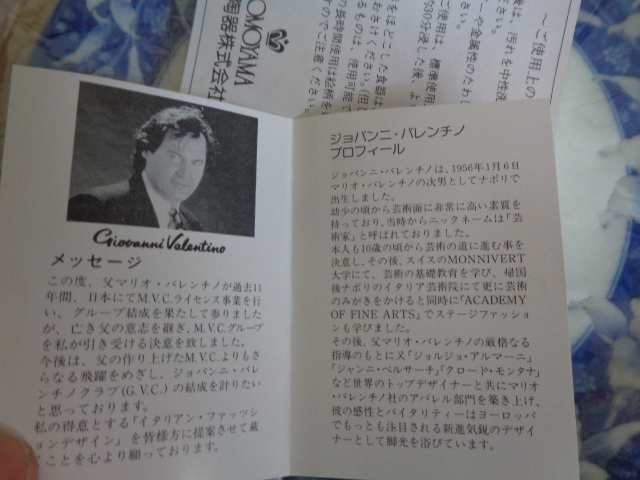 〜ご使用上の
OMOYAMA
陶器株式会社
Giovanni Valentino
メッセージ
この度、父マリオ・バレンチノが過去11
年間、日本にてM.V.C.ライセンス事業を行
い、グループ結成を果たして参りました
が、亡き父の意志を継ぎ、M.V.C.グループ
を私が引き受ける決意を致しました。
今後は、父の作り上げたM.V.C.よりもさ
らなる飛躍をめざし、ジョバンニ・バレ
ンチノクラブ(G.V.C.)の結成を計りたい
と思っております。
私の得意とする「イタリアン・ファッツシ
ョンデザイン」を皆様方に提案させて戴
くことを心より願っております。
ジョバンニ・バレンチノ
プロフィール
ジョバンニ・バレンチノは、1956年1月6日
マリオ・バレンチノの次男としてナポリで
出生しました。
幼少の頃から芸術面に非常に高い素質を
持っており、当時からニックネームは「芸
術家」と呼ばれておりました。
本人も10歳の頃から芸術の道に進む事を
決意し、その後、スイスのMONNIVERT
大学にて、芸術の基礎教育を学び、帰国
後ナポリのイタリア芸術院にて更に芸術
のみがきをかけると同時に「ACADEMY
OF FINE ARTS」でステージファッショ
ンも学びました。
その後、父マリオ・バレンチノの厳格なる
指導のもとに又「ジョルジョ・アルマーニ」
「ジャンニ・ベルサーチ」「クロード・モンタナ」
など世界のトップデザイナーと共にマリオ
・バレンチノ社のアパレル部門を築き上げ、
彼の感性とバイタリティーはヨーロッパ
でもっとも注目される新進気鋭のデザイ
ナーとして脚光を浴びています。